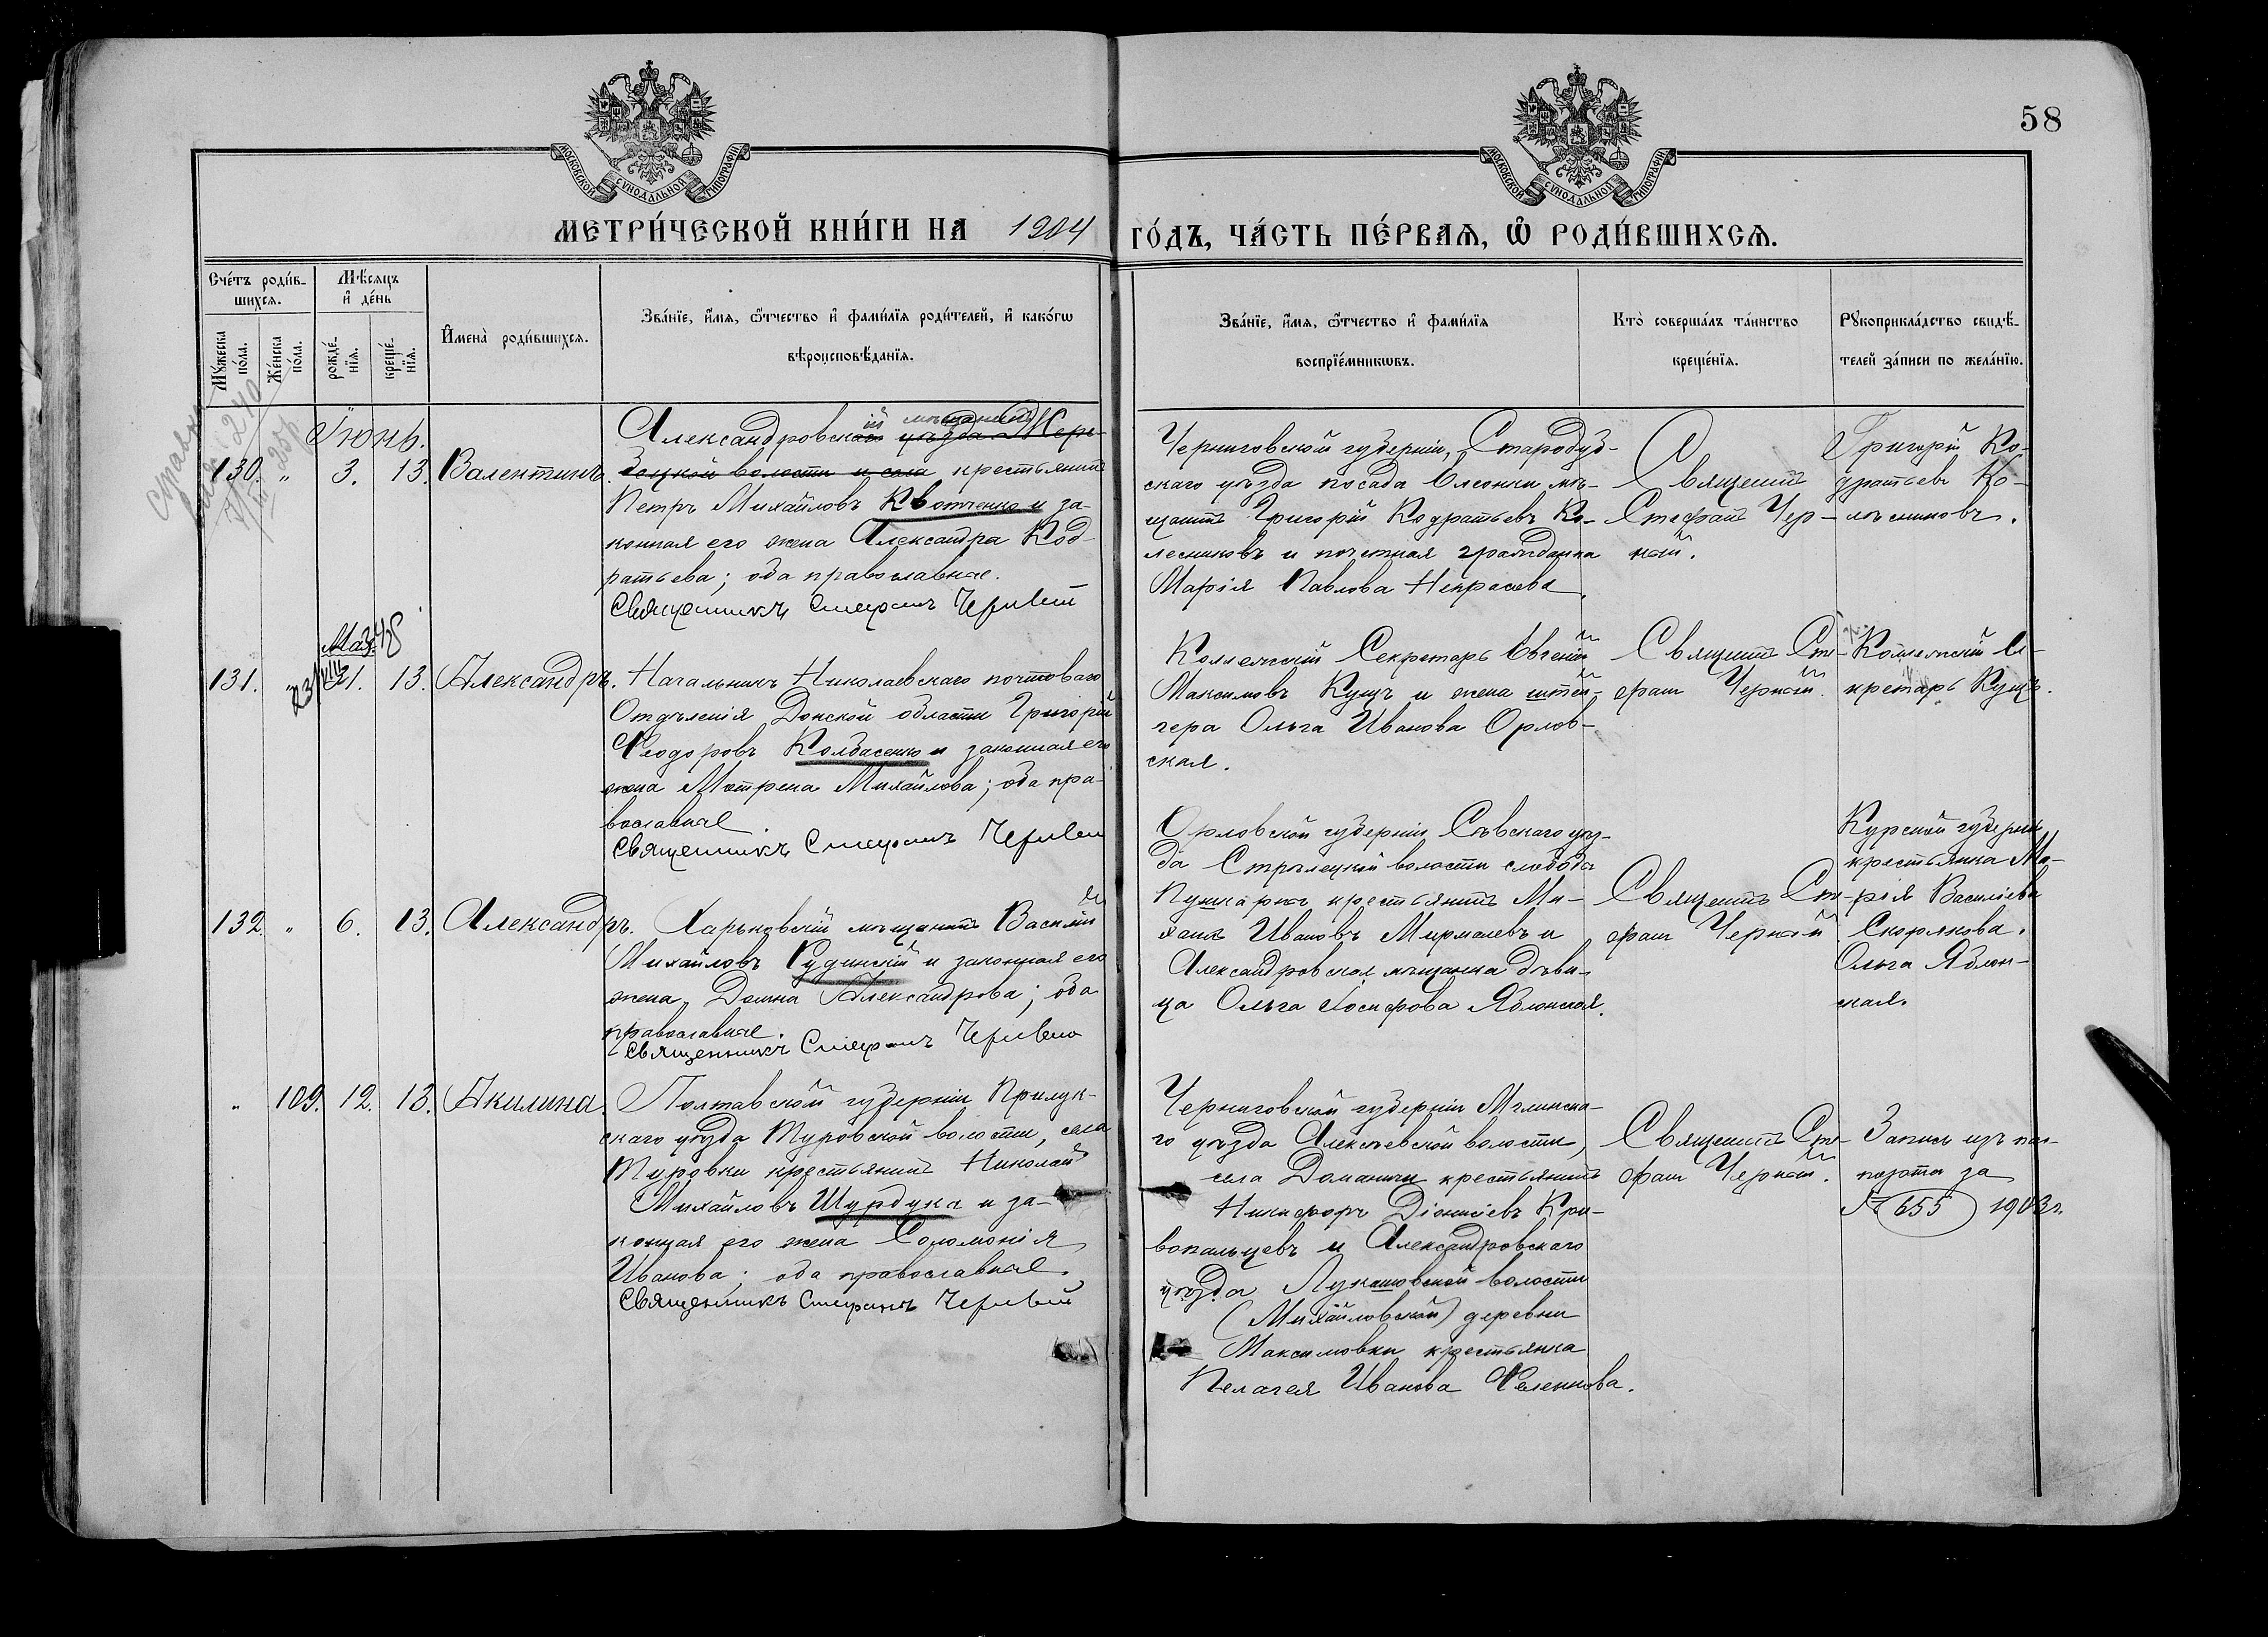 58
МОСКОВСКОЙ СѴНОДАЛЬНОЙ ТИПОГРАФІИ
МОСКОВСКОЙ СѴНОДАЛЬНОЙ ТИПОГРАФІИ
МЕТРИ́ЧЕСКОЙ КНИ́ГИ НА 1904 ГО́ДЪ, ЧА́СТЬ ПЕ́РВАѦ, Ѽ РОДИ́ВШИХСѦ.
Сче́тъ роди́в-
шихсѧ.
Мꙋ́жеска по́ла.
Же́нска по́ла.
Мѣ́сѧцъ
и҆ де́нь
рожде́-
нїѧ.
креще́-
нїѧ.
И҆мена̀ роди́вшихсѧ.
Зва́нїе, и҆́мѧ, ѻ҆́тчество и҆ фами́лїѧ роди́телей, и҆ како́гѡ
вѣроисповѣ́данїѧ.
Зва́нїе, и҆́мѧ, ѻ҆́тчество и҆ фами́лїѧ
воспрїе́мникѡвъ.
Кто̀ соверша́лъ та́инство
креще́нїѧ.
Рꙋкоприкла́дство свидѣ́-
телей за́писи по жела́нїю.
Іюнь.
130. " 3. 13. Валентинъ.
Александровскаго ій мѣщанинъ уѣзда
волости и села крестьянинъ
Петръ Михайловъ Квотченко и за-
конная его жена Александра Код-
ратьева; оба православные.
Священникъ Стефанъ Чернай
Черниговской губерніи, Стародуб-
скаго уѣзда посада Клинцы мѣ-
щанинъ Григорій Кодратьевъ Ко-
лесниковъ и почетная гражданка
Марія Павлова Некрасова.
Священникъ
Стефанъ Чер-
най.
Григорій Ко-
дратьевъ Ко-
лѣсниковъ.
Мая
131. 31. 13. Александръ.
Начальникъ Николаевскаго почтоваго
Отдѣленія Донской области Григорій
Ѳеодоровъ Колбасенко и законная его
жена Матрена Михайлова; оба пра-
вославные
Священникъ Стефанъ Чернай
Коллежскій Секретарь Евгеній
Максимовъ Кущъ и жена штей-
гера Ольга Иванова Орлов-
ская.
Священникъ Сте-
фанъ Чернай.
Коллежскій Се-
кретарь Кущъ.
132. " 6. 13. Александръ.
Харьковскій мѣщанинъ Василій
Михайловъ Рудинскій и законная его
жена Домна Александрова; оба
православные.
Священникъ Стефанъ Чернай
Орловской губерніи Сѣвскаго уѣз-
да Стрѣлецкой волости слобода
Пушкарка крестьянинъ Ми-
хаилъ Ивановъ Мирмалевъ и
Александровская мѣщанка дѣви-
ца Ольга Іосифова Яблонская.
Священникъ Сте-
фанъ Чернай.
Курской губерніи
крестьянка Ма-
рія Васильева
Скорякова.
Ольга Яблон-
ская.
" 109. 12. 13. Акилина.
Полтавской губерніи Прилук-
скаго уѣзда Туровской волости, села
Туровки крестьянинъ Николай
Михайловъ Шурдука и за-
конная его жена Соломонія
Иванова; оба православные.
Священникъ Стефанъ Чернай
Черниговской губерніи Мглинска-
го уѣзда Алексѣевской волости,
села Доманичи крестьянинъ
Никифоръ Діонисіевъ Кри-
вопальцевъ и Александровскаго
уѣзда Лукашовской волости
(Михайловской) деревни
Максимовки крестьянка
Пелагея Иванова Феленкова.
Священникъ Сте-
фанъ Чернай.
Запись изъ пас-
порта за
№ 655 1903 г.